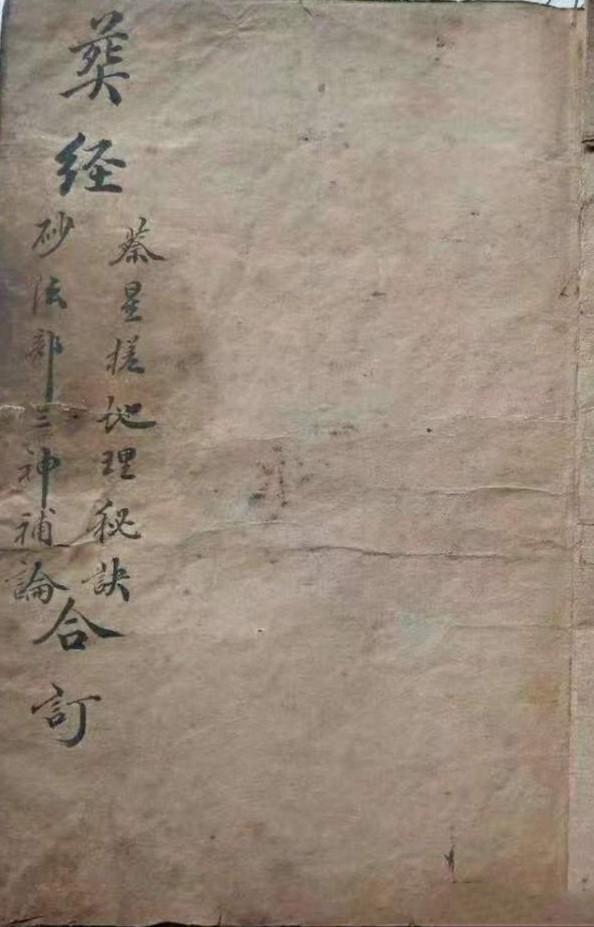 葬经
蔡星槎地理秘訣
砂法部三神補論
合訂